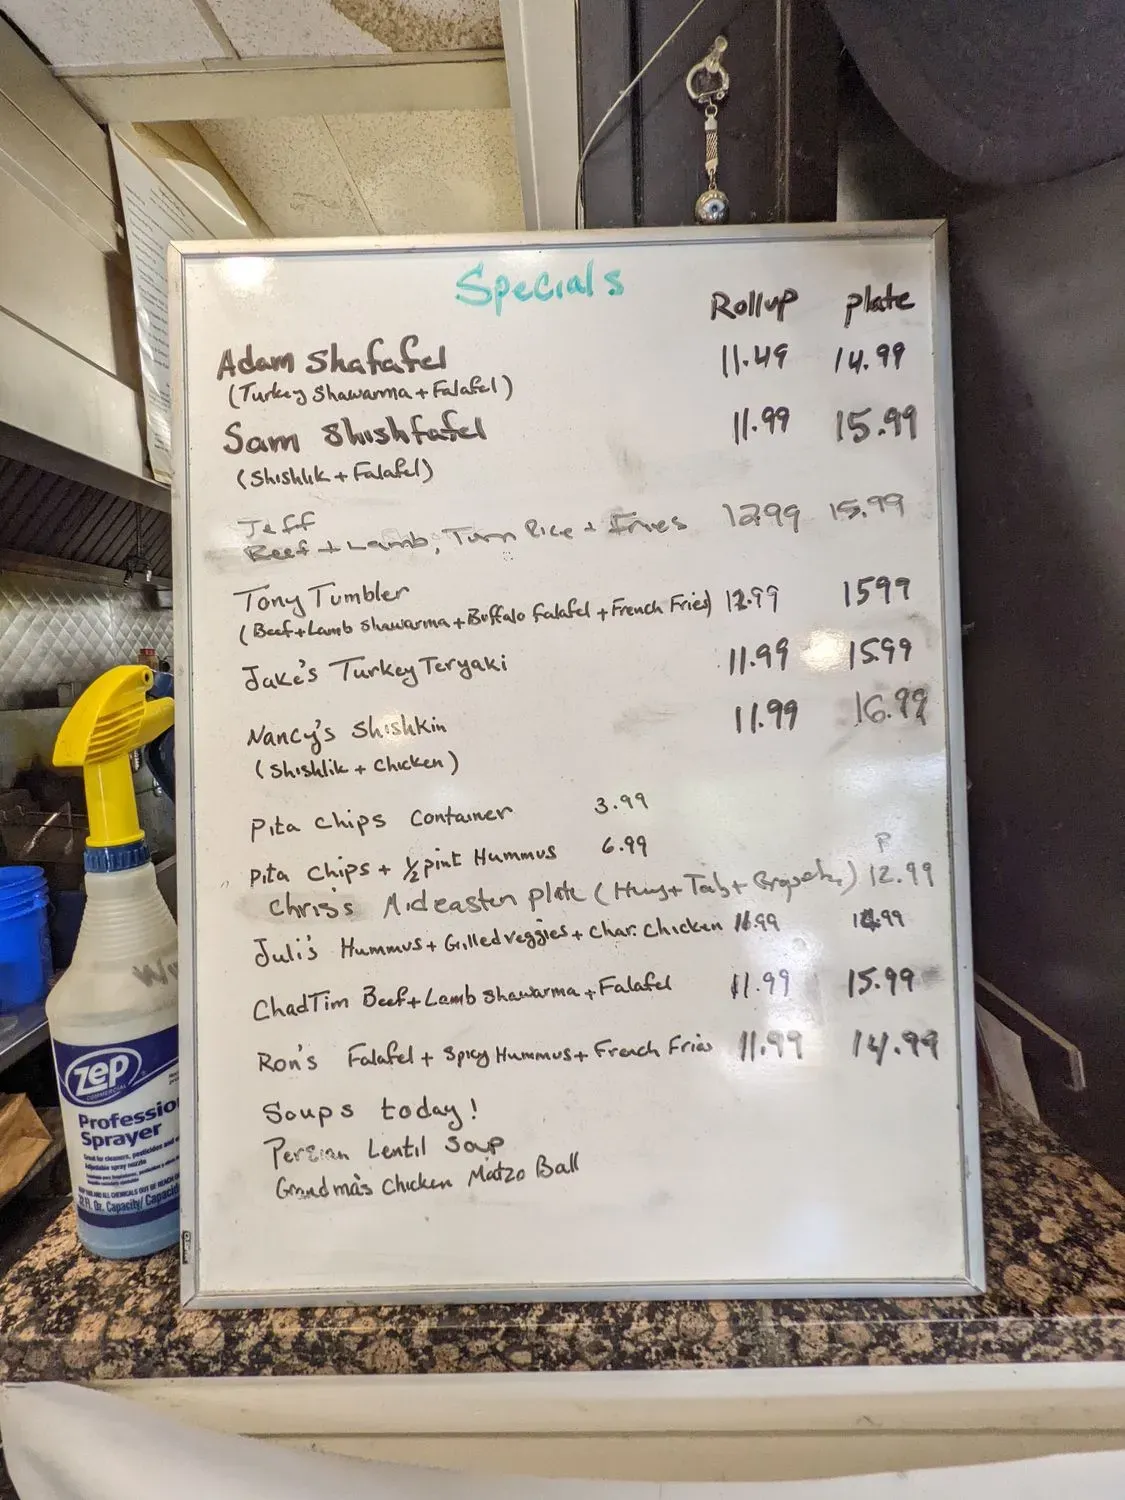 Specials
Rollup plate
Adam Shafafel 11.49 14.99
(Turkey Shawarma + Falafel)
Sam Shishfafel 11.99 15.99
(Shishlik + Falafel)
Jeff
Beef + Lamb, Turn Rice + Fries 12.99 15.99
Tony Tumbler
(Beef + Lamb Shawarma + Buffalo Falafel + French Fries) 12.99 1599
Jake's Turkey Teryaki 11.99 15.99
Nancy's Shishkin 11.99 16.99
(Shishlik + Chicken)
Pita Chips Container 3.99
Pita Chips + ½ pint Hummus 6.99
P
Chris's Mideastern plate (Hum + Tab + 12.99
Juli's Hummus + Grilled veggies + Char. Chicken
ChadTim Beef + Lamb Shawarma + Falafel 11.99 15.99
Ron's Falafel + Spicy Hummus + French Fries 11.99 14.99
Soups today!
Persian Lentil Soup
Grandma's Chicken Matzo Ball
zep
COMMERCIAL
Professio
Sprayer